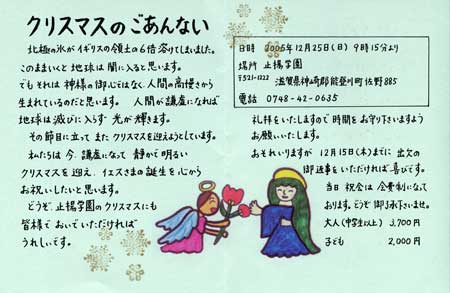 クリスマスのごあんない
北極の氷がイギリスの領土の6倍溶けてしまいました。
このままいくと地球は闇に入ると思います。
でもそれは神様の御心ではなく、人間の高慢さから
生まれているのだと思います。 人間が謙虚になれば
地球は滅びに入らず 光が輝きます。
その節目に立って また クリスマスを迎えようとしています。
私たちは今、謙虚になって 静かで明るい
クリスマスを迎え、イエスさまの誕生を心から
お祝いしたいと思います。
どうぞ、止揚学園のクリスマスにも
皆様でおいでいただければ
うれしいです。
日時 2005年12月25日(日) 9時15分より
場所 止揚学園
〒521-1222 滋賀県神崎郡能登川町佐野885
電話 0748-42-0635
礼拝をいたしますので時間をお守り下さいますよう
お願いいたします。
おそれいりますが 12月15日(木)までに 出欠の
御返事をいただければ喜びです。
当日 祝会は 会費制になって
おります。どうぞ 御了承下さいませ。
大人(中学生以上) 3,700円
子ども 2,000円